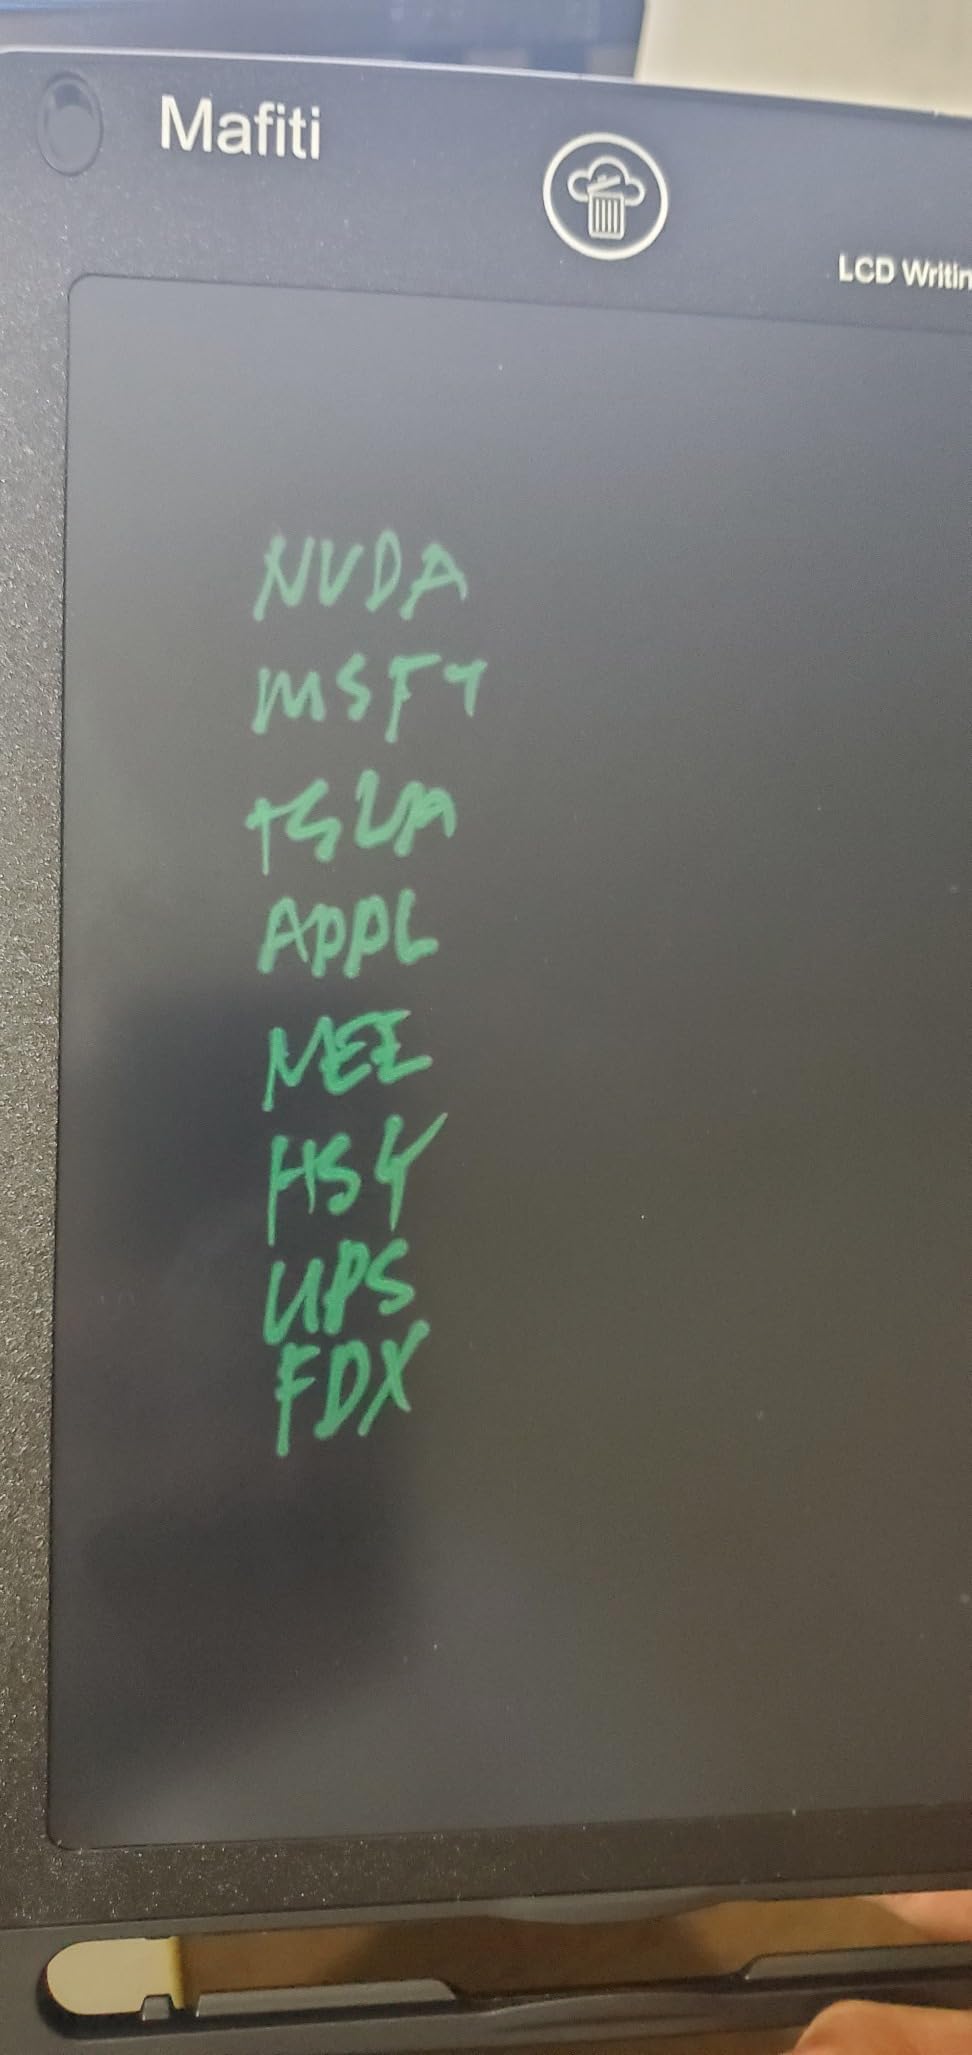 Mafiti
LCD Writin
NVDA
MSFT
TSLA
APPL
NEE
HSY
UPS
FDX